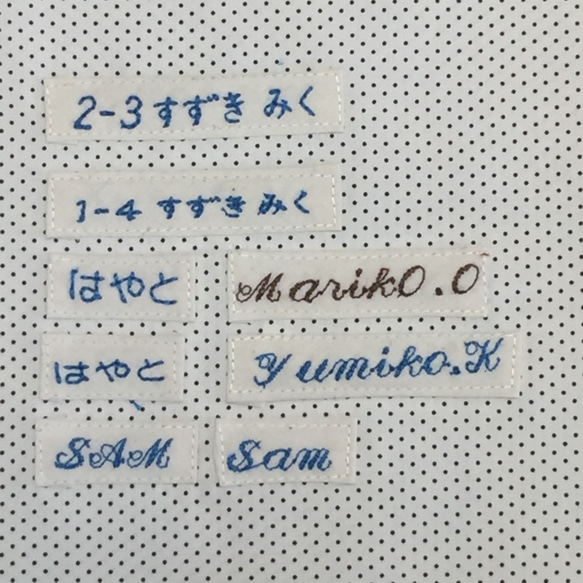 2-3 すずき みく
1-4 すずき みく
はやと
MarikO.O
はやと
Yumiko.K
SAM
Sam